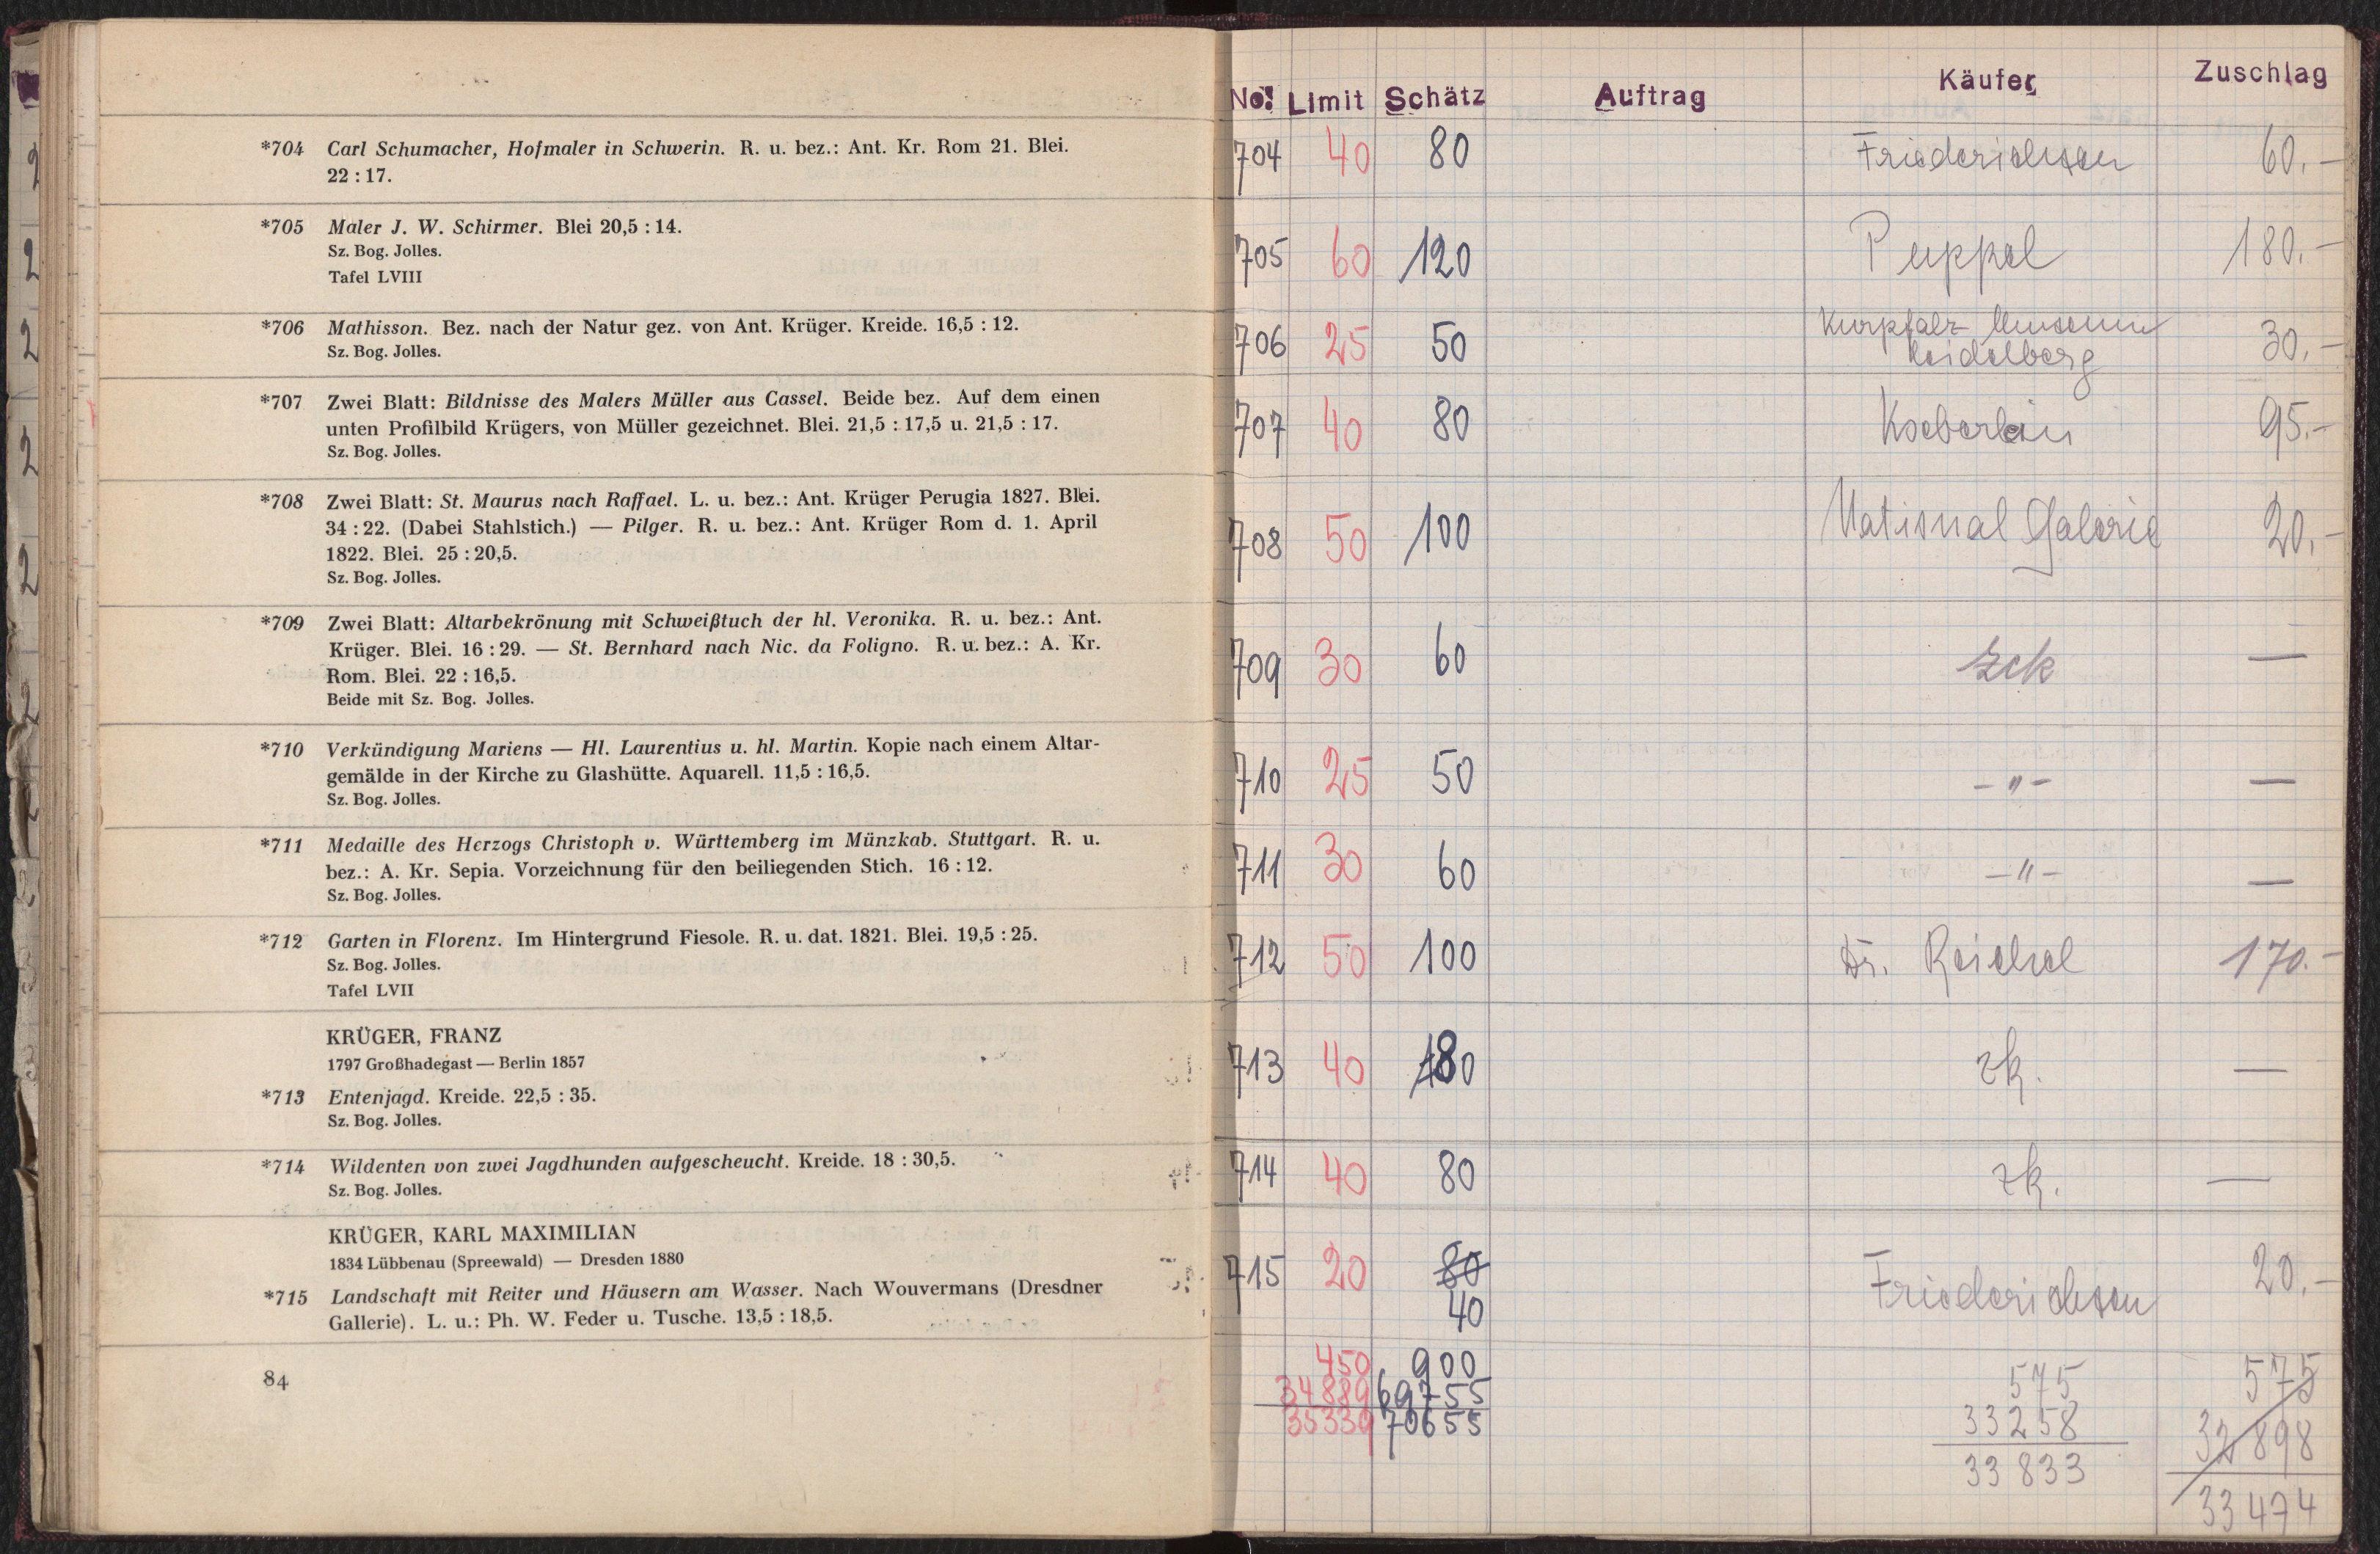 *704 Carl Schumacher, Hofmaler in Schwerin. R. u. bez.: Ant. Kr. Rom 21. Blei.
22 : 17.
*705 Maler J. W. Schirmer. Blei 20,5 : 14.
Sz. Bog. Jolles.
Tafel LVIII
*706 Mathisson. Bez. nach der Natur gez. von Ant. Krüger. Kreide. 16,5 : 12.
Sz. Bog. Jolles.
*707 Zwei Blatt: Bildnisse des Malers Müller aus Cassel. Beide bez. Auf dem einen
unten Profilbild Krügers, von Müller gezeichnet. Blei. 21,5 : 17,5 u. 21,5 : 17.
Sz. Bog. Jolles.
*708 Zwei Blatt: St. Maurus nach Raffael. L. u. bez.: Ant. Krüger Perugia 1827. Blei.
34 : 22. (Dabei Stahlstich.) — Pilger. R. u. bez.: Ant. Krüger Rom d. 1. April
1822. Blei. 25 : 20,5.
Sz. Bog. Jolles.
*709 Zwei Blatt: Altarbekrönung mit Schweißtuch der hl. Veronika. R. u. bez.: Ant.
Krüger. Blei. 16 : 29. — St. Bernhard nach Nic. da Foligno. R. u. bez.: A. Kr.
Rom. Blei. 22 : 16,5.
Beide mit Sz. Bog. Jolles.
*710 Verkündigung Mariens — Hl. Laurentius u. hl. Martin. Kopie nach einem Altar-
gemälde in der Kirche zu Glashütte. Aquarell. 11,5 : 16,5.
Sz. Bog. Jolles.
*711 Medaille des Herzogs Christoph v. Württemberg im Münzkab. Stuttgart. R. u.
bez.: A. Kr. Sepia. Vorzeichnung für den beiliegenden Stich. 16 : 12.
Sz. Bog. Jolles.
*712 Garten in Florenz. Im Hintergrund Fiesole. R. u. dat. 1821. Blei. 19,5 : 25.
Sz. Bog. Jolles.
Tafel LVII
KRÜGER, FRANZ
1797 Großhadegast — Berlin 1857
*713 Entenjagd. Kreide. 22,5 : 35.
Sz. Bog. Jolles.
*714 Wildenten von zwei Jagdhunden aufgescheucht. Kreide. 18 : 30,5.
Sz. Bog. Jolles.
KRÜGER, KARL MAXIMILIAN
1834 Lübbenau (Spreewald) — Dresden 1880
*715 Landschaft mit Reiter und Häusern am Wasser. Nach Wouvermans (Dresdner
Gallerie). L. u.: Ph. W. Feder u. Tusche. 13,5 : 18,5.
84
No. Limit Schätz Auftrag Käufer Zuschlag
704 40 80 Friederichsen 60.-
705 60 120 Puppel 180.-
706 25 50 Kurpfalz Museum 30.-
Heidelberg
707 40 80 Koeberlein 95.-
708 50 100 National Galerie 20.-
709 30 60 zck —
710 25 50 -"- —
711 30 60 -"- —
712 50 100 Dr. Reichel 170.-
713 40 80 zk. —
714 40 80 zk. —
715 20 80 Friederichsen 20.-
40
450 900 575 575
34889 69755 33258 32898
35339 70655 33833 33474